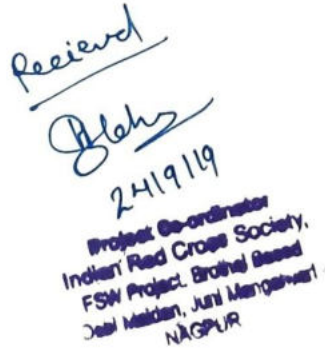 Recieved
24/9/19
Project Co-ordinator
Indian Red Cross Society,
FSW Project. Brothel Based
Maidan, Juni Mangalwari
NAGPUR